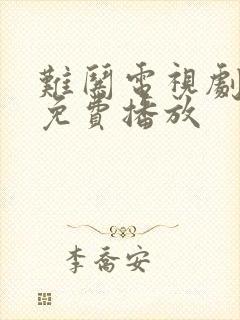 難鬪電視劇
免費播放
李喬安